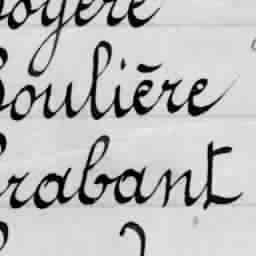 oyère
Boulière
Brabant